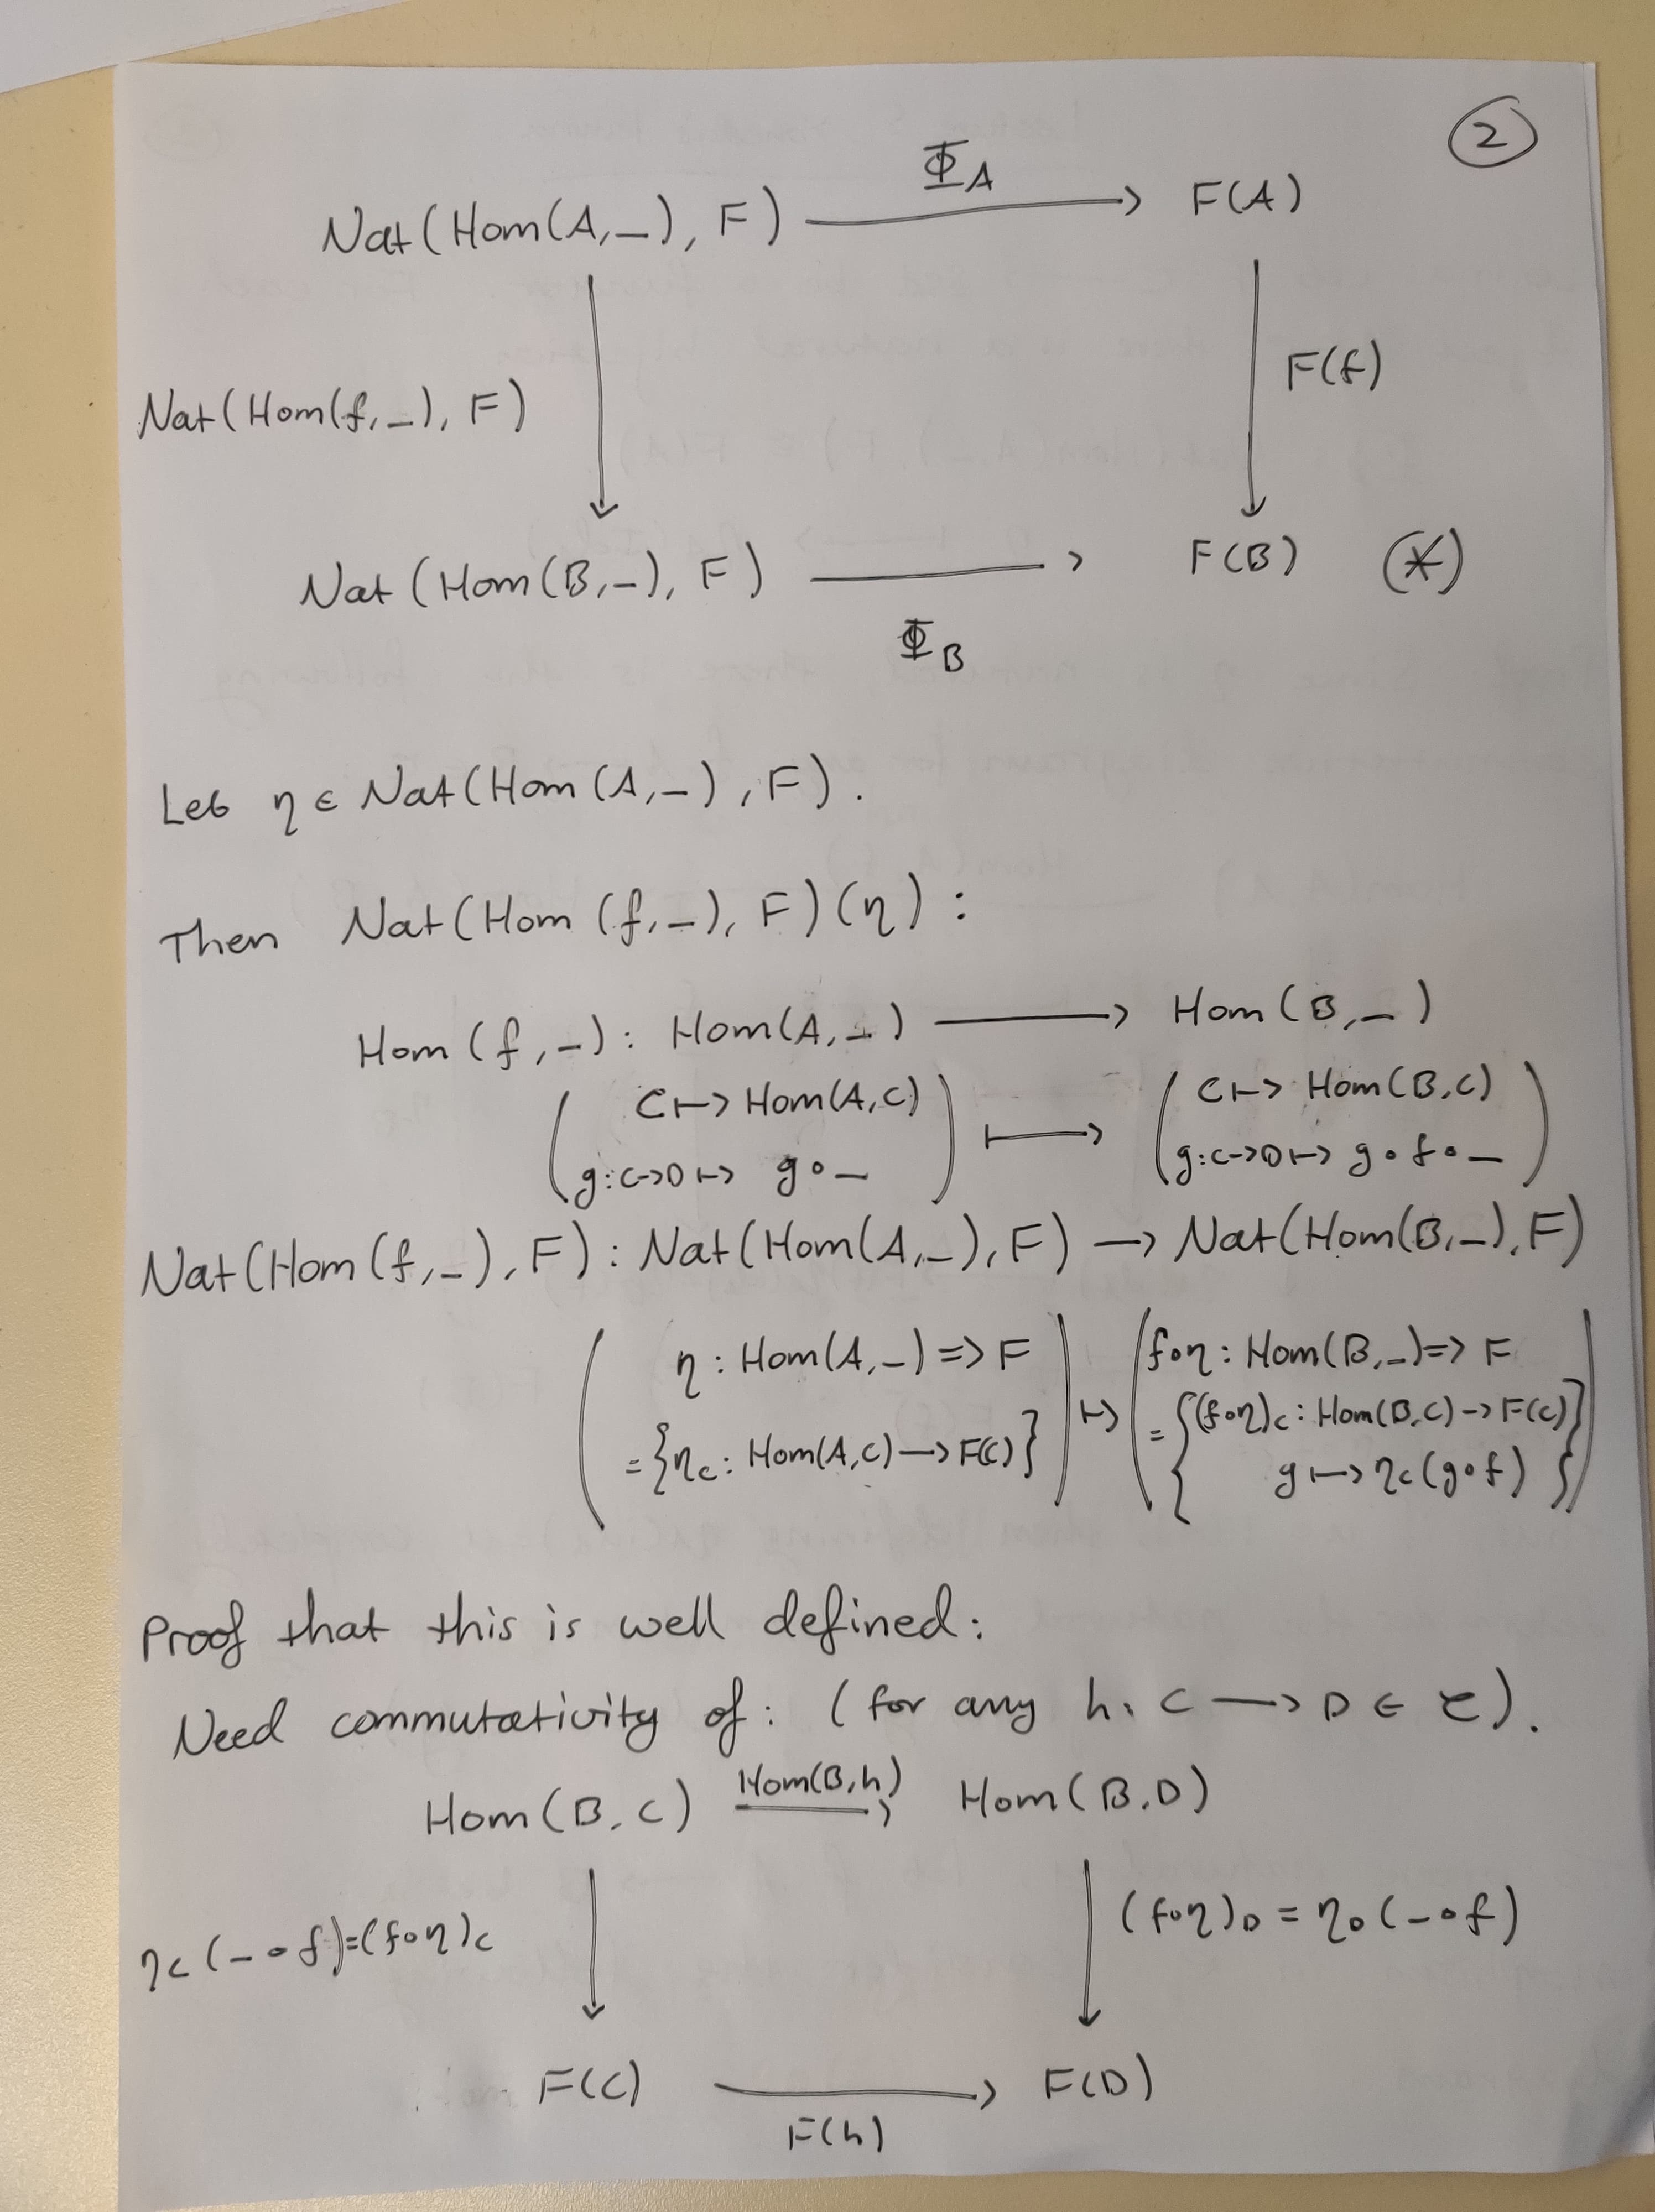 2
Φ_A
Nat(Hom(A,_), F) ⟶ F(A)
Nat(Hom(f,_), F)
F(f)
Nat(Hom(B,_), F) ⟶ F(B) (*)
Φ_B
Let η ∈ Nat(Hom(A,_), F).
Then Nat(Hom(f,_), F)(η):
Hom(f,_): Hom(A,_) ⟶ Hom(B,_)
( C ↦ Hom(A,C) ) ⟼ ( C ↦ Hom(B,C) )
( g: C→D ↦ g∘_ ) ( g: C→D ↦ g∘f∘_ )
Nat(Hom(f,_), F): Nat(Hom(A,_), F) → Nat(Hom(B,_), F)
( η: Hom(A,_) => F ) ↦ ( f∘η: Hom(B,_) => F )
= {η_C: Hom(A,C) → F(C)} = {(f∘η)_C: Hom(B,C) → F(C)
g ↦ η_C(g∘f) }
Proof that this is well defined:
Need commutativity of: (for any h: C ⟶ D ∈ 𝒞).
Hom(B,h)
Hom(B,C) ⟶ Hom(B,D)
η_C(_∘f)=(f∘η)_C
(f∘η)_D = η_D(_∘f)
F(C) ⟶ F(D)
F(h)